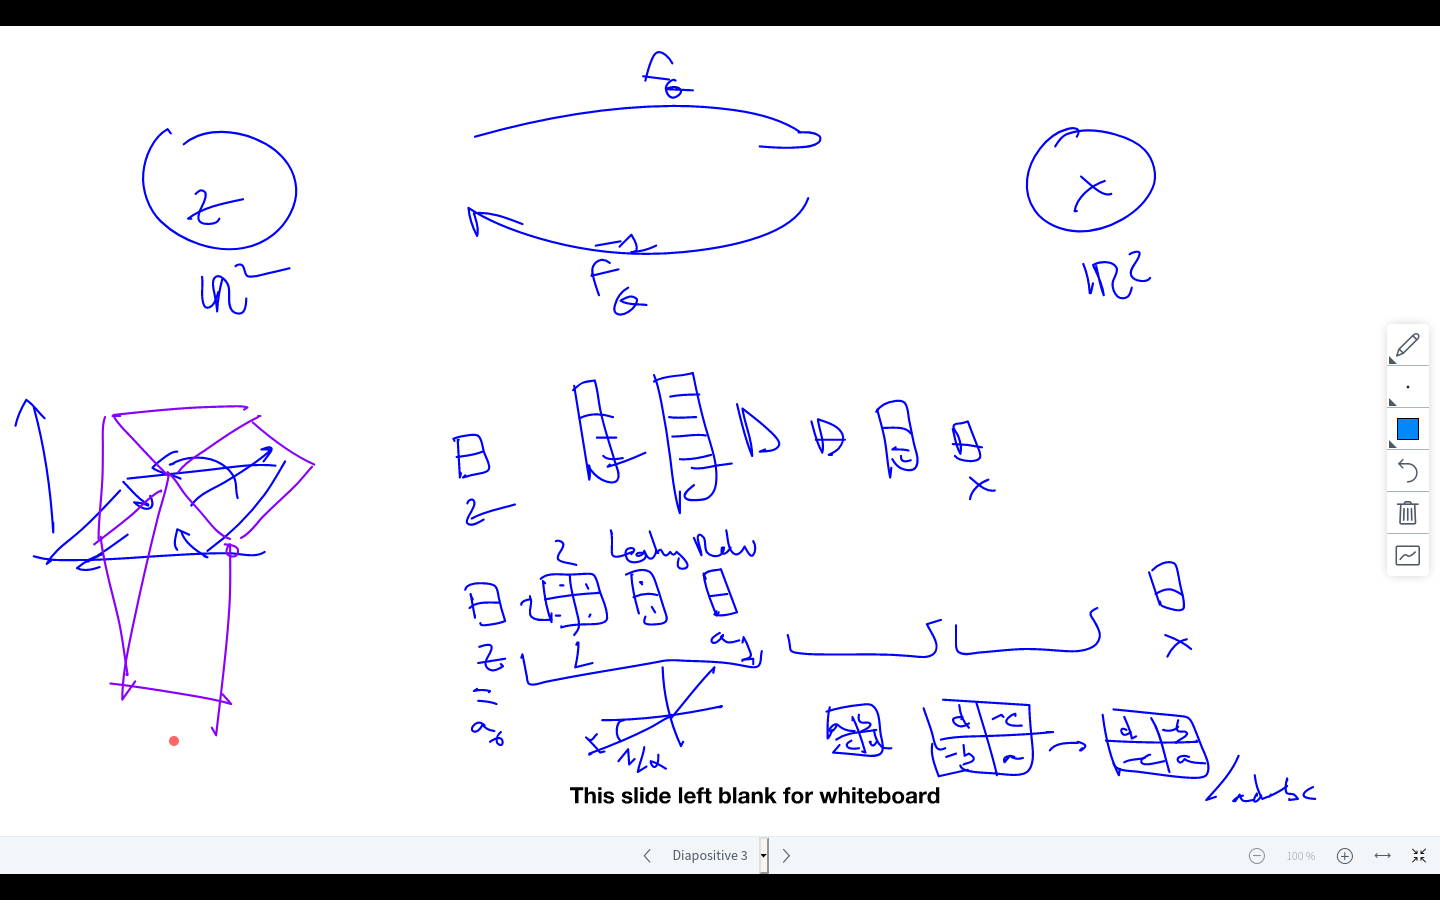 f_θ
z
x
f_θ^-1
ℝ²
ℝ²
z
x
2
Leaky Relu
2
z
=
a_0
L
a_1
x
1/α
a b
-c d
d -c
-b a
→
d -b
-c a
/ad-bc
This slide left blank for whiteboard
Diapositive 3
100 %